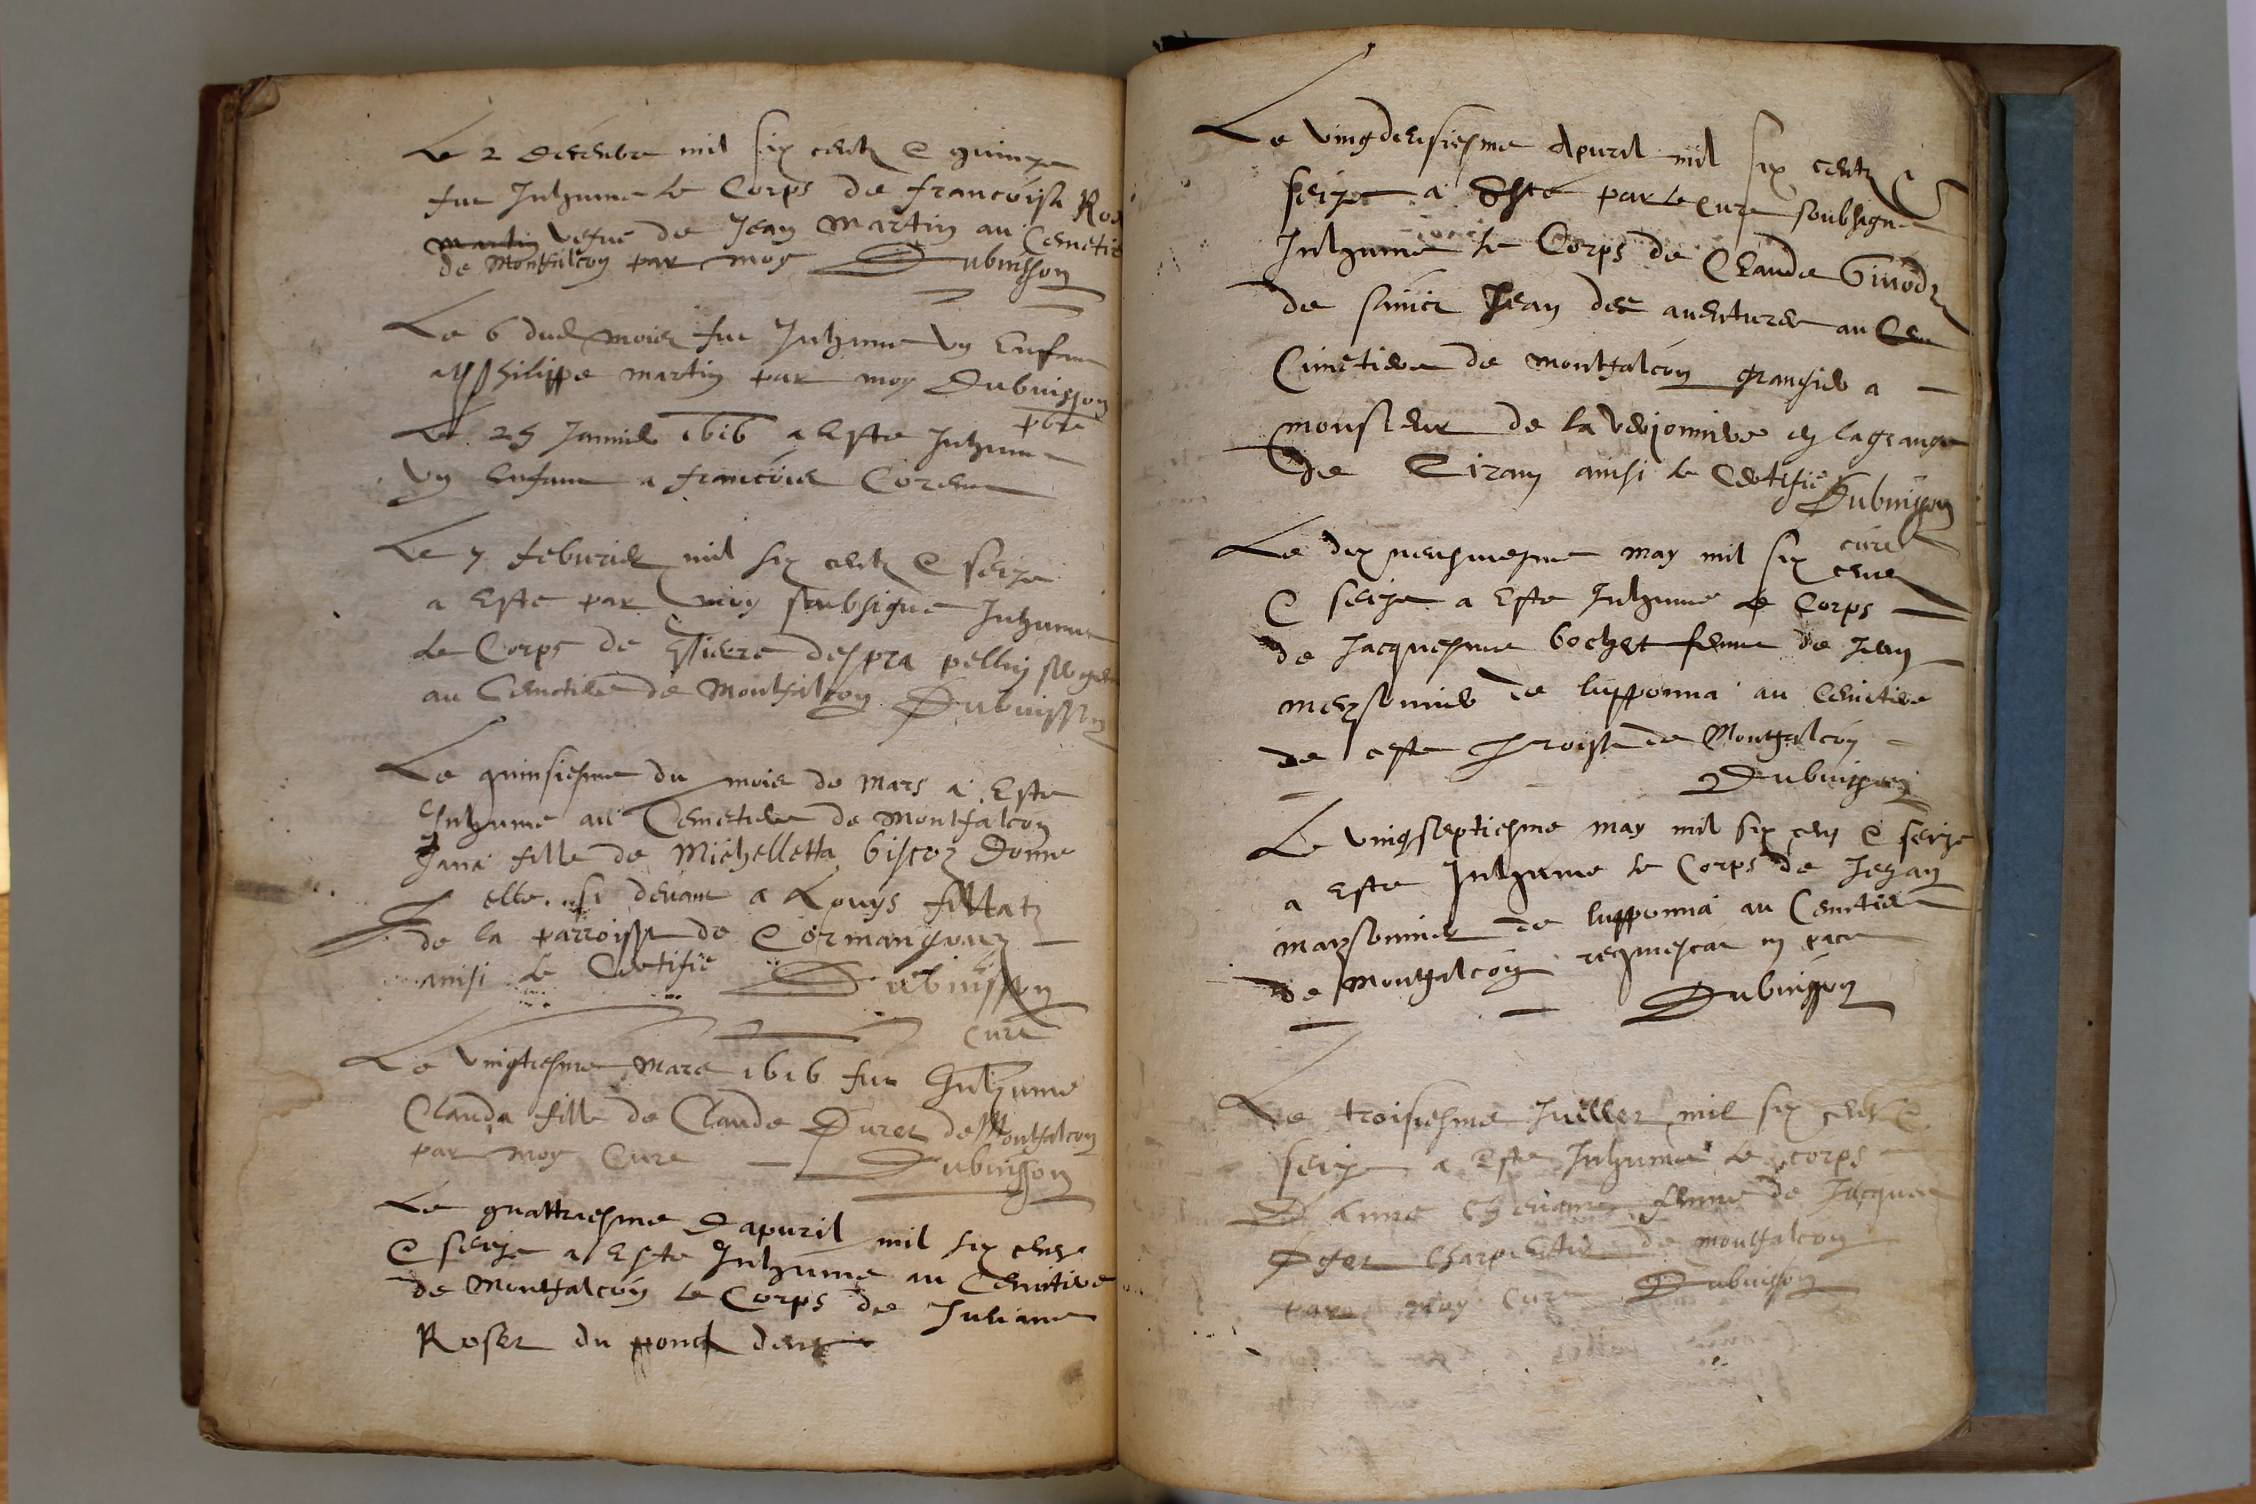 Le 2 decembre mil six centz & quinze
fut Inhume le Corps de francoisa Ros
martin vefue de Jean Martin au Cemetie
de Montfalcon par moy Dubuisson
Le 6 dud mois fut Inhume un Enfant
a philippe martin par moy Dubuisson
pbre
Le 25 Januier 1616 a Este Inhume
un Enfant a francois
Le 7 feburier mil six centz & seize
a Este par moy soubsigne Inhume
le Corps de Pierre
au Cemetiere de Montfalcon Dubuisson
Le quinsiesme du mois de Mars a Este
Inhume au Cemetiere de Montfalcon
Jana fille de Michelletta biscoz Donne
elle. si deuant a Louys
de la parroisse de Cormangouz
ainsi le Certifie Dubuisson
cure
Le vingtiesme Mars 1616 fut Inhume
Clauda fille de Claude Duret de Montfalcon
par moy Cure Dubuisson
Le quattriesme D'apuril mil six centz
& seize a Este Inhume au Cemetiere
de Montfalcon le Corps de Juliane
Roset du
Le vingdeusiesme Apuril mil six centz &
seize a Este par le cure soubsigne
Inhume le Corps de Claude
de sainct Jean des auentures au Cem
Cimetiere de montfalcon grangier a
monsieur de la en la grange
de ainsi le Certifie Dubuisson
cure
Le dix neufuiesme may mil six cent
& seize a Este Inhume le Corps
de Jacquesme bochet femme de Jean
meysonnier de lupponna au Cemetiere
de ceste parroisse de Montfalcon
Dubuisson
Le vingseptiesme may mil six cent & seize
a Este Inhume le Corps de Jehan
maysonnier de lupponna au Cemetiere
de Montfalcon requiescat in pace
Dubuisson
Le troisiesme Juillet mil six centz &
seize a Este Inhume le corps
D Anne femme de Jacques
Charpentier de montfalcon
par moy Cure Dubuisson